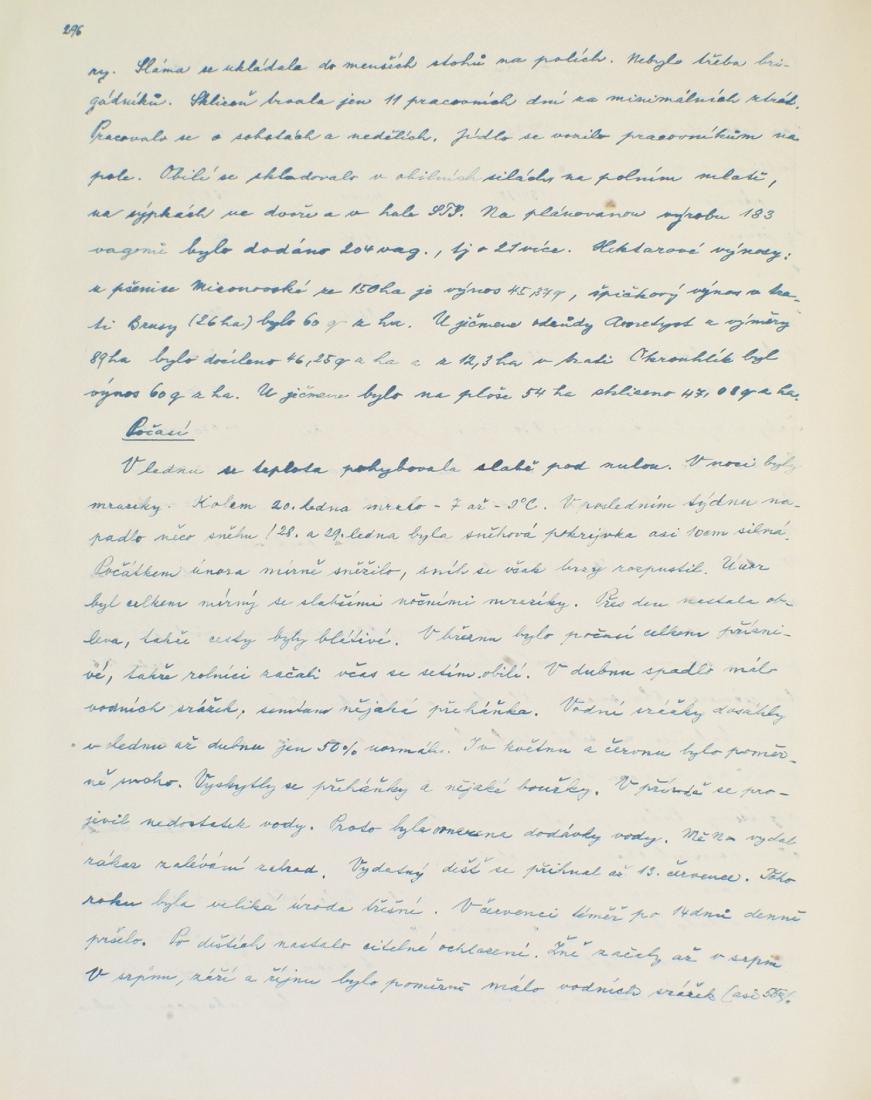 296
ry. Sláma se ukládala do menších stohů na polích. Nebylo třeba bri-
gádníků. Sklizeň trvala jen 11 pracovních dní za minimálních ztrát.
Pracovalo se o sobotách a nedělích. Jídlo se vozilo pracovníkům na
pole. Obilí se skladovalo v obilních silách, na polním mlatě,
na sýpkách ve dvoře a v hale STS. Na plánovanou výrobu 183
vagonů bylo dodáno 204 vag., tj o 21 více. Hektarové výnosy:
u pšenice Mironovské ze 150 ha je výnos 45,37 q, špičkový výnos v tra-
ti Brusy (26 ha) bylo 60 q z ha. U ječmene odrůdy Ametyst z výměry
89 ha bylo docíleno 46,25 q z ha a z 12,3 ha v trati Okrouhlík byl
výnos 60 q z ha. U ječmene bylo na ploše 54 ha sklizeno 47,08 q z ha.
Počasí
V lednu se teplota pohybovala slabě pod nulou. V noci byly
mrazíky. Kolem 20. ledna mrzlo - 7 až - 9°C. V posledním týdnu na-
padlo něco sněhu / 28. a 29. ledna byla sněhová pokrývka asi 10 cm silná.
Počátkem února mírně sněžilo, sníh se však brzy rozpustil. Únor
byl celkem mírný se slabšími nočními mrazíky. Přes den nastala ob-
leva, takže cesty byly blátivé. V březnu bylo počasí celkem přízni-
vé, takže rolníci začali včas se setím obilí. V dubnu spadlo málo
vodních srážek, semtam nějaká přeháňka. Vodní srážky dosáhly
v lednu až dubnu jen 50% normálu. I v květnu a červnu bylo poměr-
ně sucho. Vyskytly se přeháňky a nějaké bouřky. V přírodě se pro-
jevil nedostatek vody. Proto byla omezena dodávky vody. MěNV vydal
zákaz zalévání zahrad. Vydatný déšť se přihnal až 13. července. Toho
roku byla veliká úroda třešní. V červenci téměř po 14 dnů denně
pršelo. Po deštích nastalo citelné ochlazení. Žně začaly až v srpnu
V srpnu, září a říjnu bylo poměrně málo vodních srážek (asi